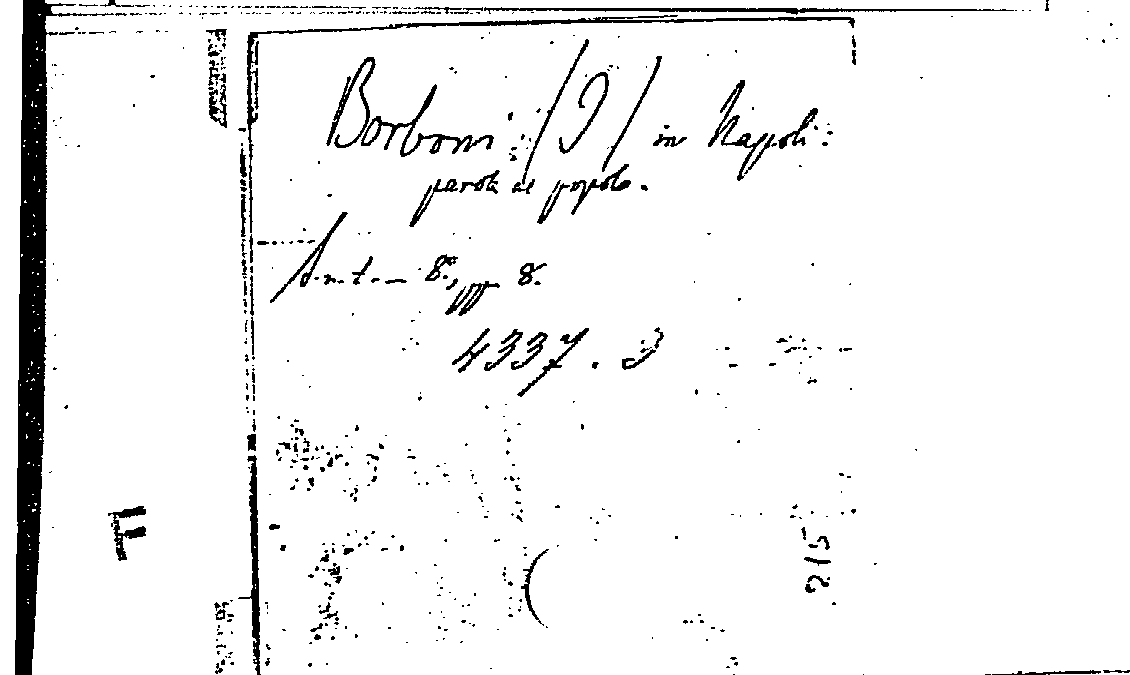 Borboni (I) in Napoli:
parole al popolo.
S.n.t. — 8°, pp. 8.
4337. I
215